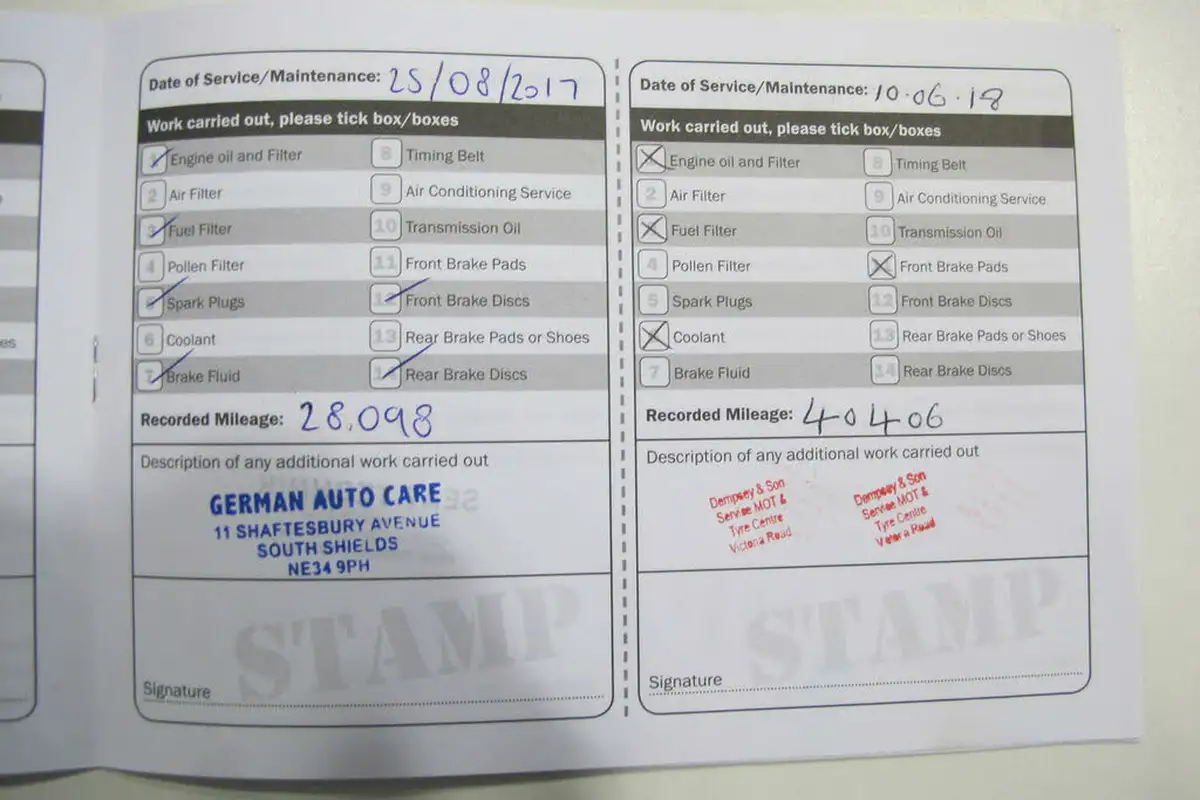 es
Date of Service/Maintenance: 25/08/2017
Work carried out, please tick box/boxes
1 Engine oil and Filter 8 Timing Belt
2 Air Filter 9 Air Conditioning Service
3 Fuel Filter 10 Transmission Oil
4 Pollen Filter 11 Front Brake Pads
5 Spark Plugs 12 Front Brake Discs
6 Coolant 13 Rear Brake Pads or Shoes
7 Brake Fluid 14 Rear Brake Discs
Recorded Mileage: 28,098
Description of any additional work carried out
GERMAN AUTO CARE
11 SHAFTESBURY AVENUE
SOUTH SHIELDS
NE34 9PH
STAMP
Signature
Date of Service/Maintenance: 10.06.18
Work carried out, please tick box/boxes
Engine oil and Filter 8 Timing Belt
2 Air Filter 9 Air Conditioning Service
Fuel Filter 10 Transmission Oil
4 Pollen Filter Front Brake Pads
5 Spark Plugs 12 Front Brake Discs
Coolant 13 Rear Brake Pads or Shoes
7 Brake Fluid 14 Rear Brake Discs
Recorded Mileage: 40406
Description of any additional work carried out
Dempsey & Son
Service MOT &
Tyre Centre
Victoria Road
Dempsey & Son
Service MOT &
Tyre Centre
Victoria Road
STAMP
Signature